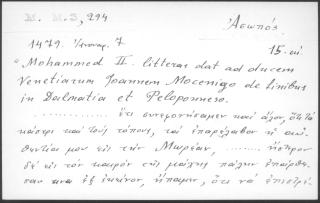 M. M. 3, 294
Ἀσωπός
1479. Ἰανουαρ. 7
15. αἰ.
"Mohammed II. litteras dat ad ducem
Venetiarum Joannem Mocenigo de finibus
in Dalmatia et Peloponneso.
............ ὅτι καὶ ἄλλον,
κάστρι καὶ τοὺς τόπους, τοὺ ἐπαρέλαβαν ἡ αὐ-
θεντία μου εἰς τὴν Μωρέαν, .........
δὲ εἰς τὸν καιρὸν τῆς μάχης πάλην ἐπαίρθη-
σαν ἐξ ἐκείνον, ἤπαμεν, ὅτι νὰ ἐπιστρέ-